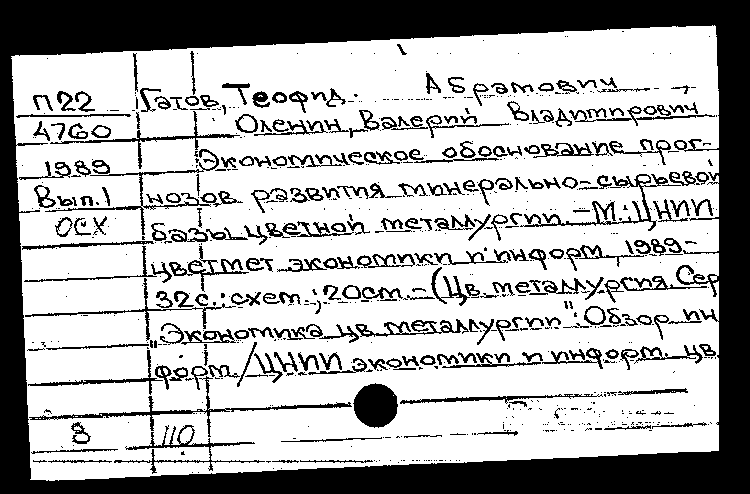 П22 Гатов, Теофид. Абрамович,
4760 Оленин, Валерий Владимирович
1989 Экономическое обоснование прог-
Вып.1 нозов развития минерально-сырьевой
ОСХ базы цветной металлургии. - М.: ЦНИИ
цветмет экономики и информ., 1989.-
32с.: схем.; 20см. - (Цв. металлургия. Сер
"Экономика цв. металлургии": Обзор. ин
форм./ЦНИИ экономики и информ. цв.
8 110